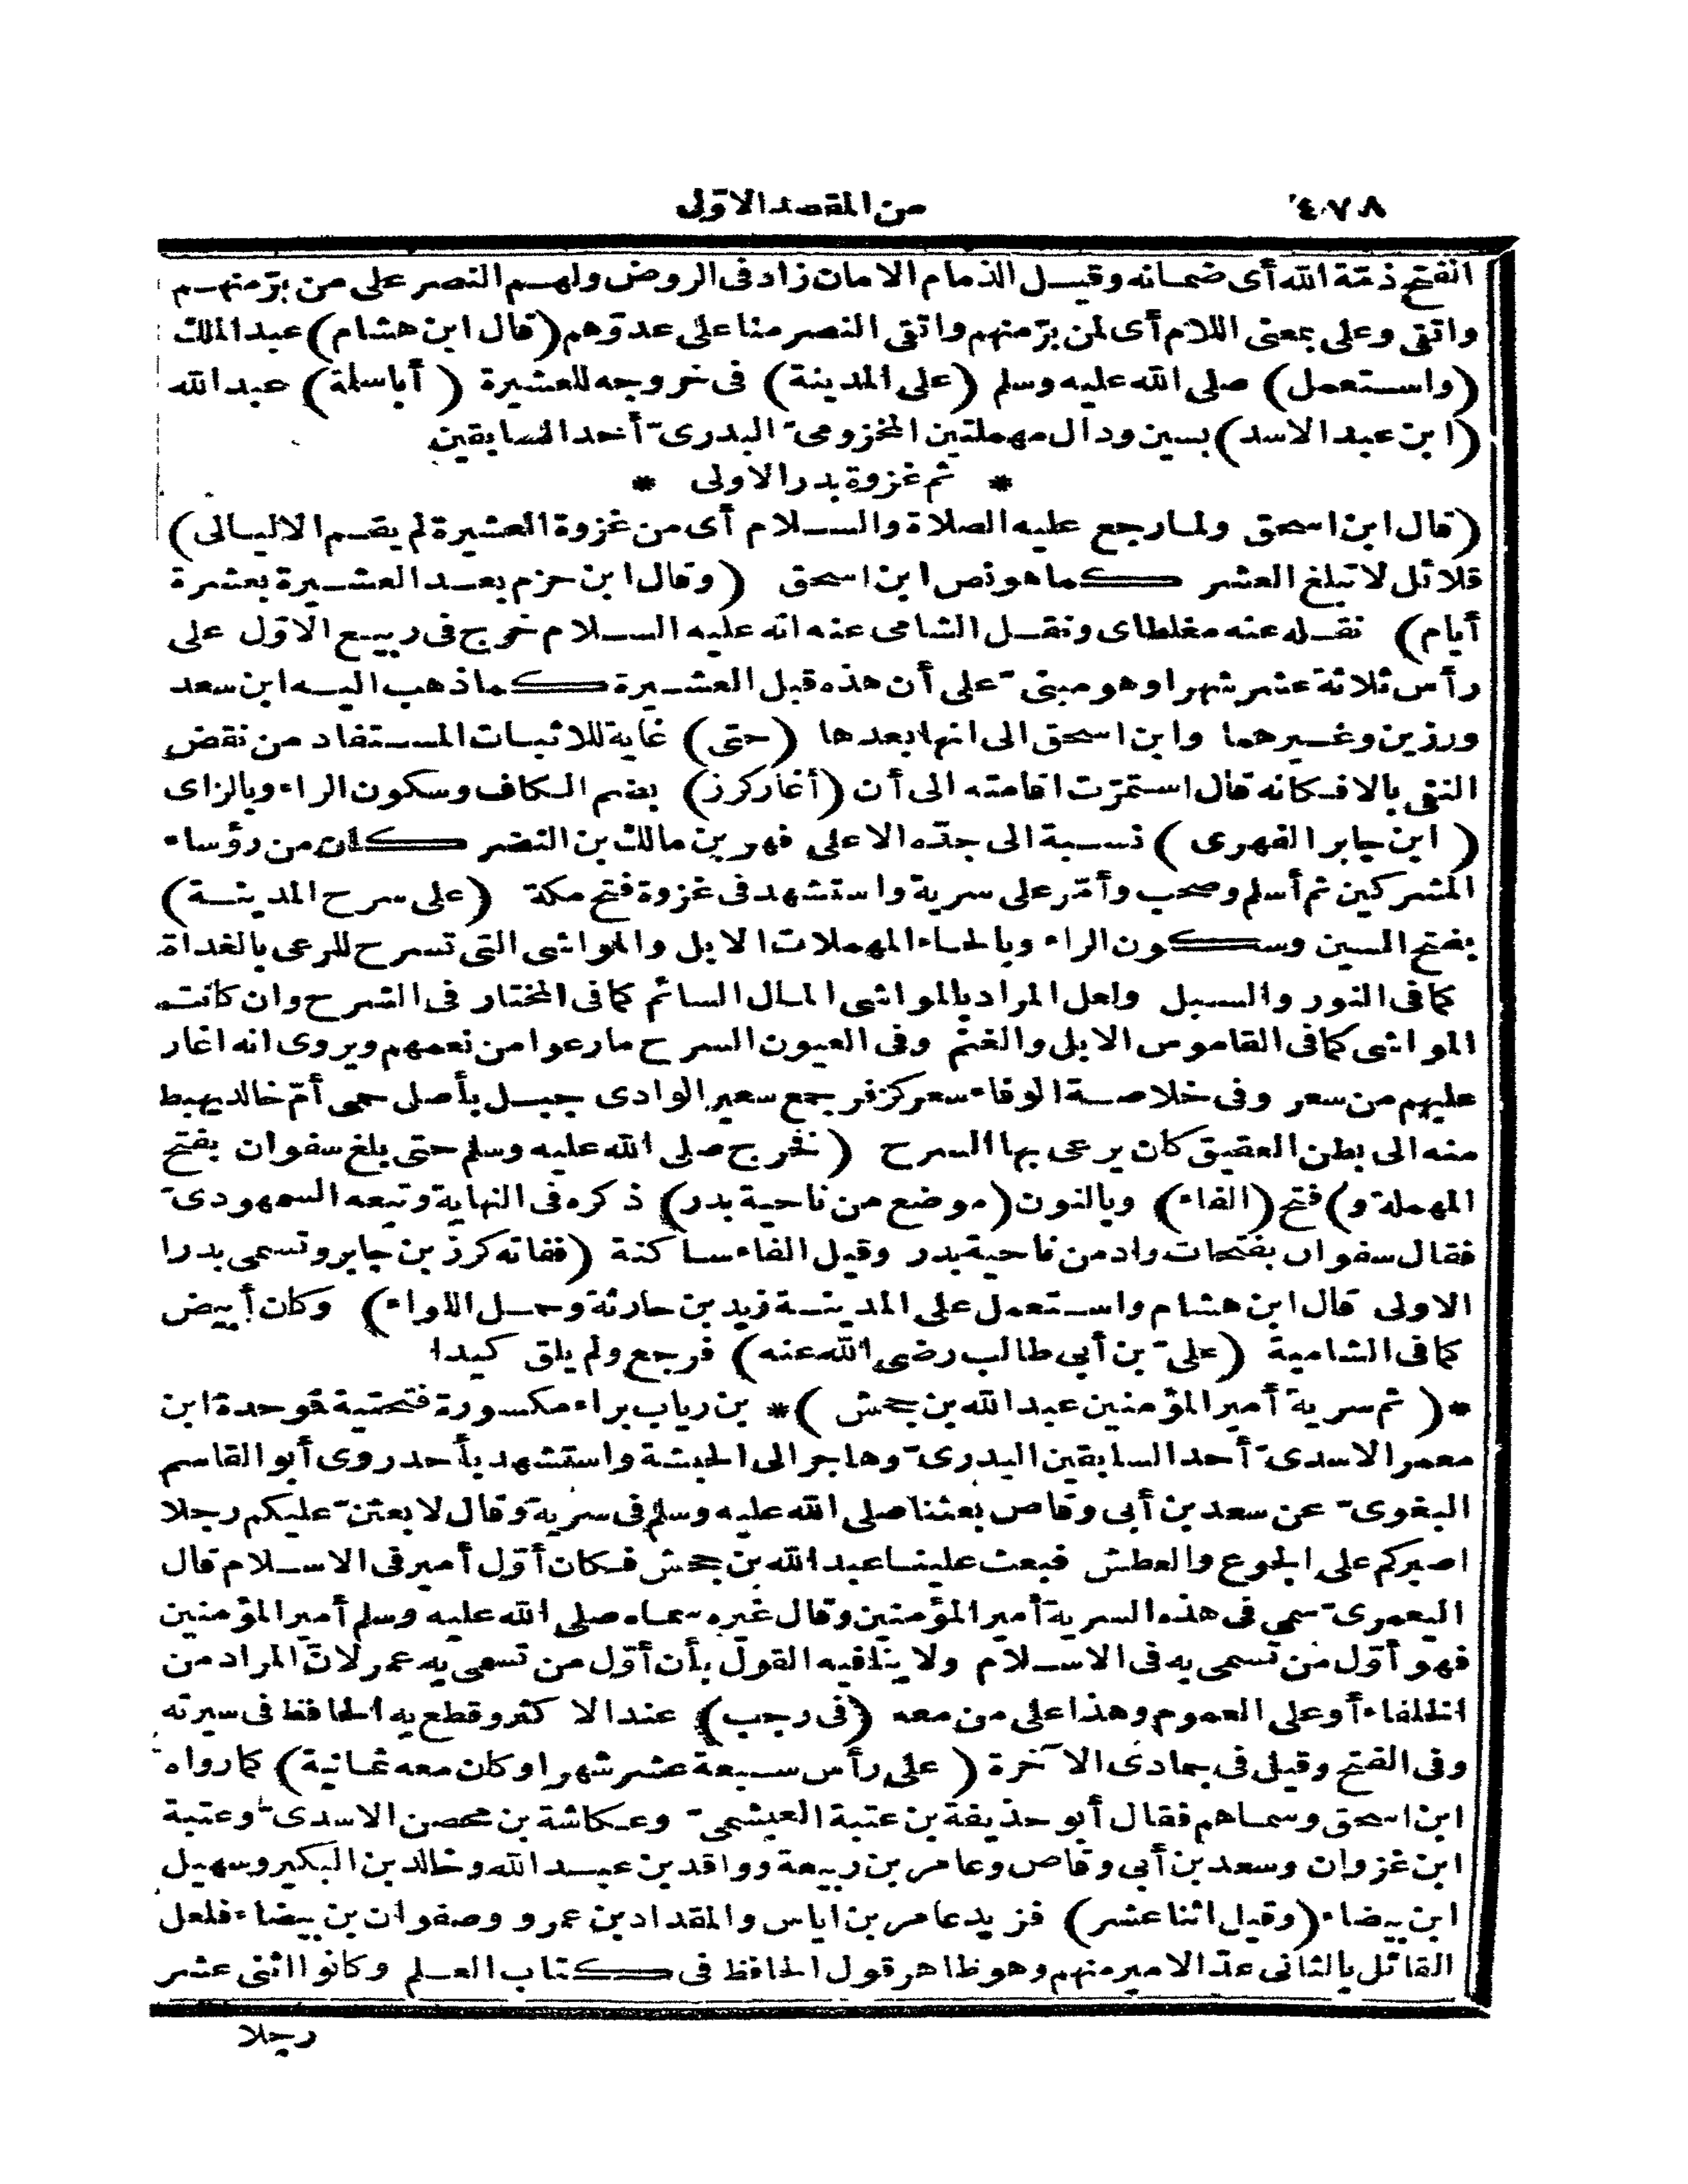 ٤٧٨ من المقصد الاوّل
الفتح ذمّة الله أى ضمانه وقيل الذمام الامان زاد فى الروض ولهم النصر على من برّ منهم
واتقى وعلى بمعنى اللام أى لمن برّ منهم واتقى النصر منا على عدوّهم (قال ابن هشام) عبد الملك
(واستعمل) صلى الله عليه وسلم (على المدينة) فى خروجه للعشيرة (أبا سلمة) عبد الله
(ابن عبد الاسد) بسين ودال مهملتين المخزومىّ البدرىّ أحد السابقين
* ثم غزوة بدر الاولى *
(قال ابن اسحق ولما رجع عليه الصلاة والسلام أى من غزوة العشيرة لم يقم الا ليالى)
قلائل لا تبلغ العشر كما هو نص ابن اسحق (وقال ابن حزم بعد العشيرة بعشرة
أيام) نقله عنه مغلطاى ونقل الشامى عنه انه عليه السلام خرج فى ربيع الاوّل على
رأس ثلاثة عشر شهرا وهو مبنىّ على أن هذه قبل العشيرة كما ذهب اليه ابن سعد
ورزين وغيرهما وابن اسحق الى انها بعدها (حتى) غاية للاثبات المستفاد من نقض
النفى بالا فكانه قال استمرّت اقامته الى أن (أغار كرز) بضم الكاف وسكون الراء وبالزاى
(ابن جابر الفهرى) نسبة الى جدّه الاعلى فهر بن مالك بن النضر كان من رؤساء
المشركين ثم أسلم وصحب وأمّر على سرية واستشهد فى غزوة فتح مكة (على سرح المدينة)
بفتح السين وسكون الراء وبالحاء المهملات الابل والمواشى التى تسرح للرعى بالغداة
كما فى النور والسبل ولعل المراد بالمواشى المال السائم كما فى المختار فى السرح وان كانت
المواشى كما فى القاموس الابل والغنم وفى العيون السرح ما رعوا من نعمهم ويروى انه اغار
عليهم من سعر وفى خلاصة الوفاء سعر كزفر جمع سعير الوادى جبل بأصل حمى أمّ خالد يهبط
منه الى بطن العقيق كان يرعى بها السرح (فخرج صلى الله عليه وسلم حتى بلغ سفوان بفتح
المهملة و) فتح (الفاء) وبالنون (موضع من ناحية بدر) ذكره فى النهاية وتبعه السمهودىّ
فقال سفوان بفتحات واد من ناحية بدر وقيل الفاء ساكنة (ففاته كرز بن جابر وتسمى بدرا
الاولى قال ابن هشام واستعمل على المدينة زيد بن حارثة وحمل اللواء) وكان أبيض
كما فى الشامية (علىّ بن أبى طالب رضى الله عنه) فرجع ولم يلق كيدا
*(ثم سرية أمير المؤمنين عبد الله بن جحش)* بن رياب براء مكسورة فتحتية فموحدة ابن
معمر الاسدىّ أحد السابقين البدرىّ وهاجر الى الحبشة واستشهد بأحد روى أبو القاسم
البغوىّ عن سعد بن أبى وقاص بعثنا صلى الله عليه وسلم فى سرية وقال لابعثنّ عليكم رجلا
اصبركم على الجوع والعطش فبعث علينا عبد الله بن جحش فكان أوّل أمير فى الاسلام قال
اليعمرىّ سمى فى هذه السرية أمير المؤمنين وقال غيره سماه صلى الله عليه وسلم أمير المؤمنين
فهو أوّل من تسمى به فى الاسلام ولا ينافيه القول بأن أوّل من تسمى به عمر لانّ المراد من
الخلفاء أو على العموم وهذا على من معه (فى رجب) عند الاكثر وقطع به الحافظ فى سيرته
وفى الفتح وقيل فى جمادى الآخرة (على رأس سبعة عشر شهرا وكان معه ثمانية) كما رواه
ابن اسحق وسماهم فقال أبو حذيفة بن عتبة العبشمىّ وعكاشة بن محصن الاسدىّ وعتبة
ابن غزوان وسعد بن أبى وقاص وعامر بن ربيعة وواقد بن عبد الله وخالد بن البكير وسهيل
ابن بيضاء (وقيل اثنا عشر) فزيد عامر بن اياس والمقداد بن عمرو وصفوان بن بيضاء فلعل
القائل بالثانى عدّ الامير منهم وهو ظاهر قول الحافظ فى كتاب العلم وكانوا اثنى عشر
رجلا